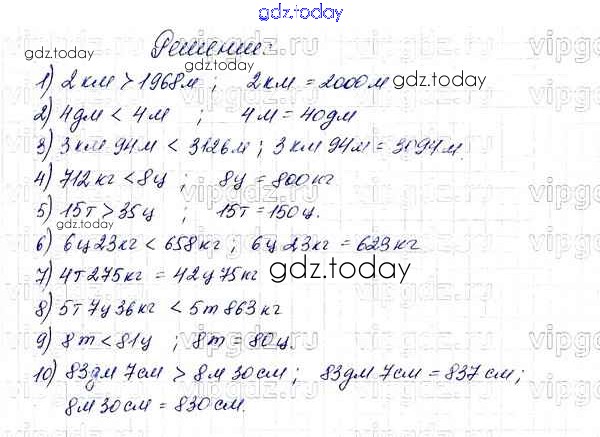 gdz.today
Решение:
gdz.today
1) 2 км > 1968 м ; 2 км = 2000 м
gdz.today
2) 4 дм < 4 м ; 4 м = 40 дм
3) 3 км 94 м < 3126 м ; 3 км 94 м = 3094 м.
4) 712 кг < 8 ц ; 8 ц = 800 кг
5) 15 т > 35 ц ; 15 т = 150 ц.
6) 6 ц 23 кг < 658 кг ; 6 ц 23 кг = 623 кг
7) 4 т 275 кг = 42 ц 75 кг
gdz.today
8) 5 т 7 ц 36 кг < 5 т 863 кг
9) 8 т < 81 ц ; 8 т = 80 ц.
10) 83 дм 7 см > 8 м 30 см ; 83 дм 7 см = 837 см ;
8 м 30 см = 830 см.
vipgdz.ru